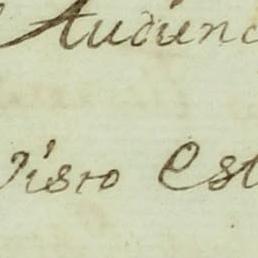 Audienc
Visto Est